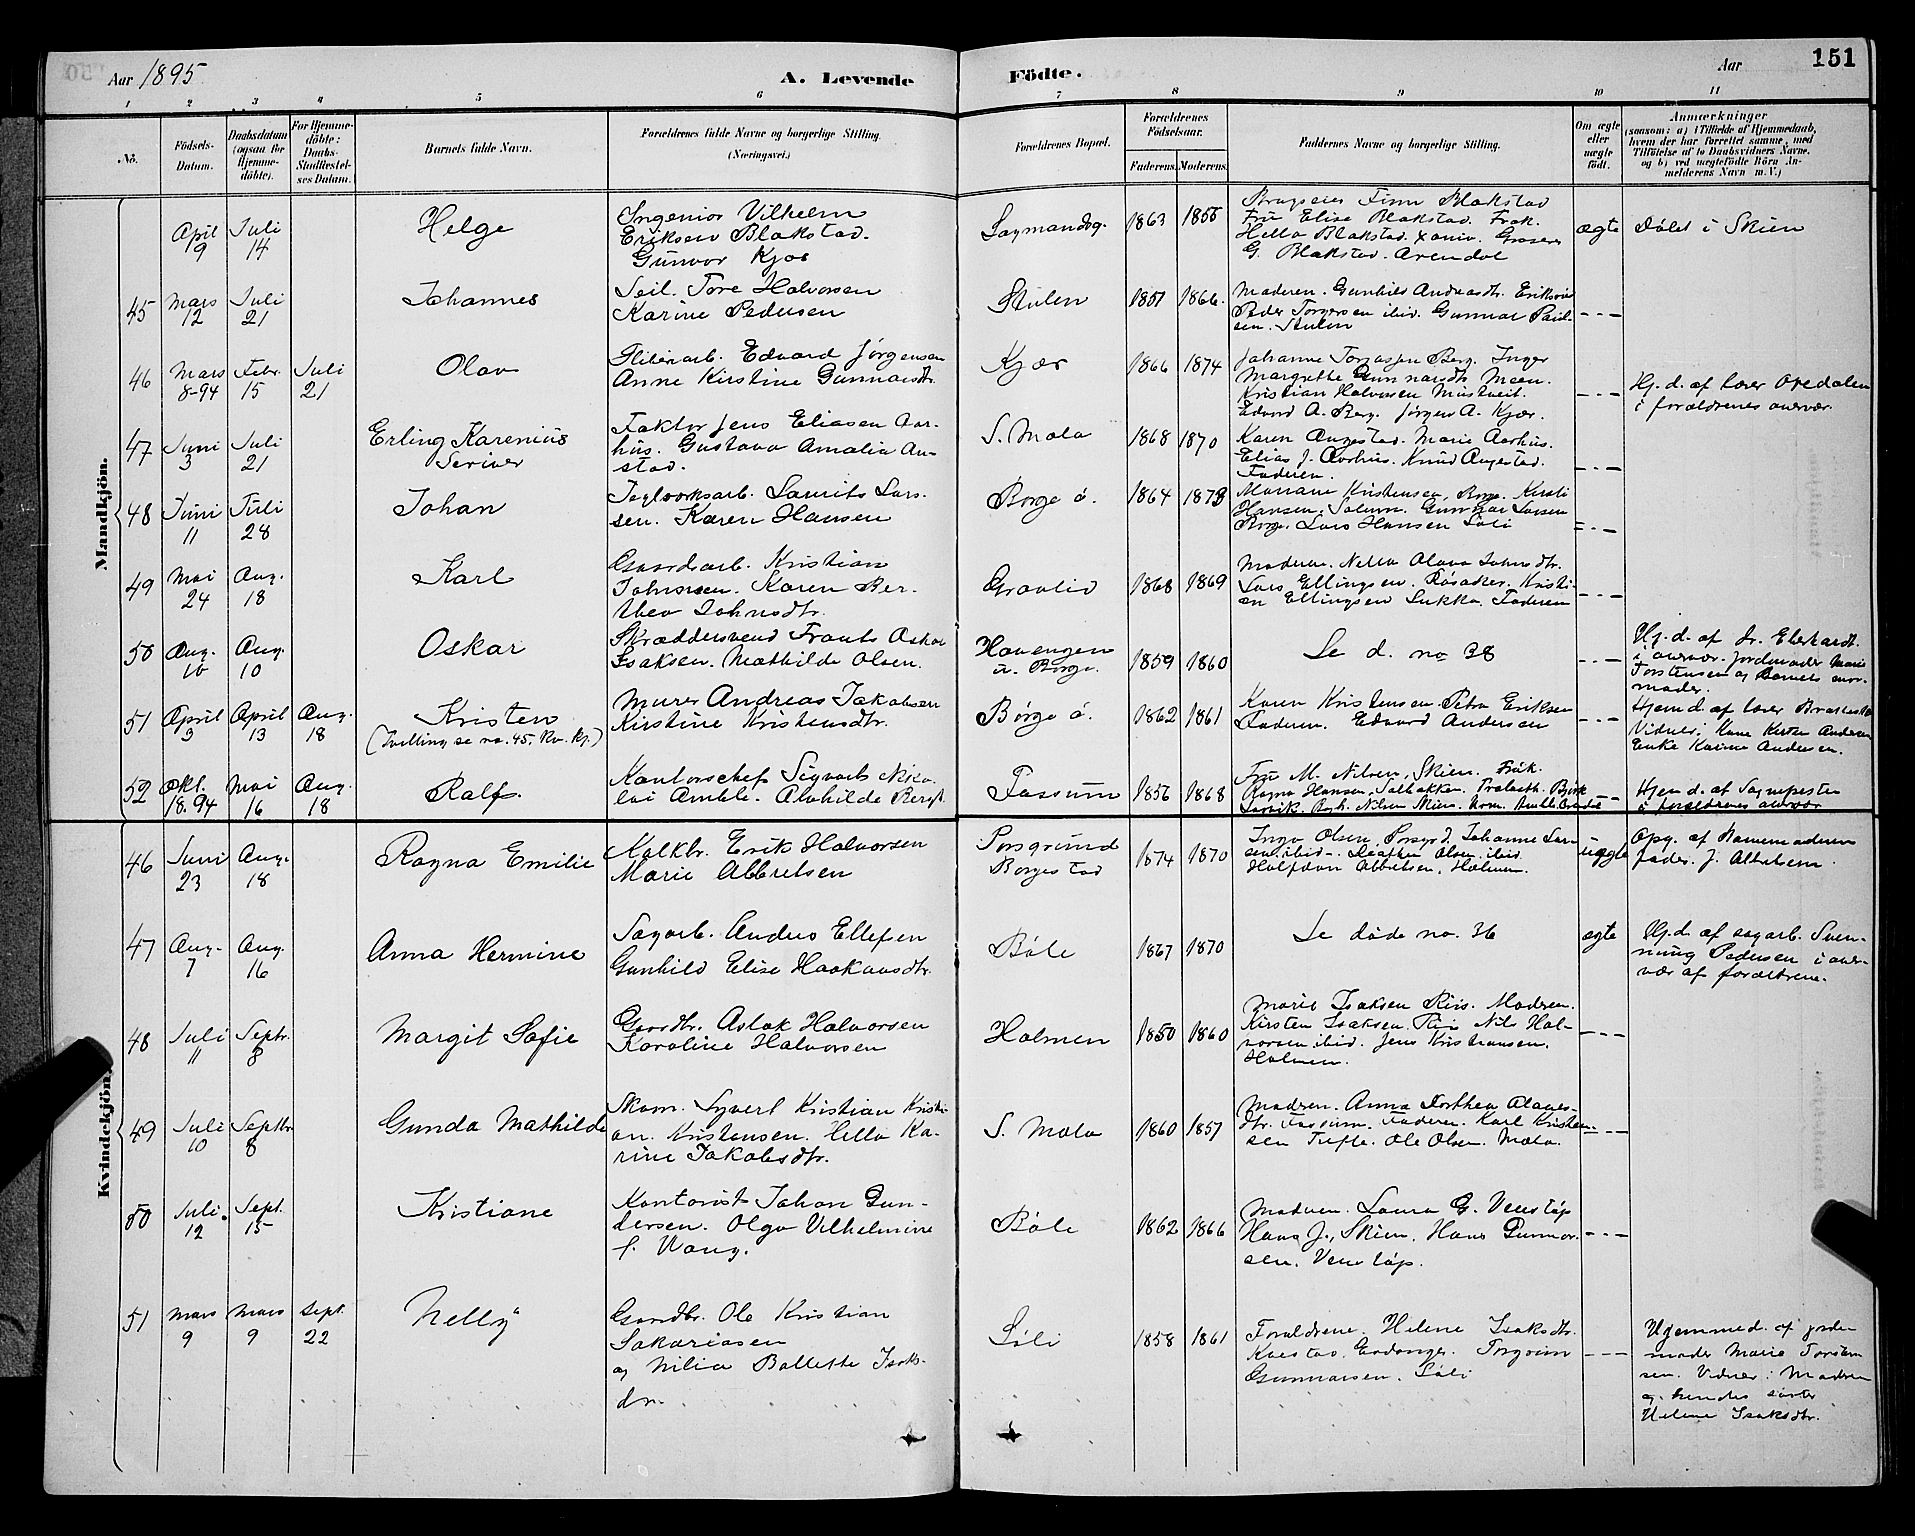 Aar 1895
A. Levende
Födte.
Aar
151
1 2 3 4 5 6 7 8 9 10 11
No.
Födsels-
Datum.
Daabsdatum
(ogsaa for
Hjemme-
döbte).
For Hjemme-
döbte:
Daabs-
Stadfæstel-
ses Datum.
Barnets fulde Navn.
Forældrenes fulde Navne og borgerlige Stilling.
(Næringsvei.)
Forældrenes Bopæl.
Forældrenes
Födselsaar.
Faderens.
Moderens.
Faddernes Navne og borgerlige Stilling.
Om ægte
eller
uægte
födt.
Anmærkninger
(saasom: a) i Tilfælde af Hjemmedaab,
hvem der har forrettet samme, med
Tilföielse af to Daabsvidners Navne.
og b) ved uægtefödte Börn An-
melderens Navn m. V.)
Mandkjön.
April
9
Juli
14
Helge
Ingeniør Vilhelm
Eriksen Blakstad.
Gunvor Kjær
1863
1855
Finn Blakstad
Fru Elise Blakstad. Frøk.
Hella Blakstad.
G. Blakstad. Arendal
ægte
Døbt i Skien
45
Mars
12
Juli
21
Johannes
Seil. Tore Halvorsen
Karine Pedersen
Stulen
1857
1866.
Moderen. Gunhild
Peder Torgersen ibid. Gunnar Paul-
sen. Stulen
- - -
46
Mars
8-94
Febr.
15
Juli
21
Olav
Edvard Jörgensen
Anne Kirstine Gunnarsdtr.
Kjær
1866
1874
Berg. Inger
Margrethe Gunnarsdtr. Moen.
Kristian Halvorsen
Edvard A. Berg. Jørgen A. Kjær.
- - -
Hj. d. af lærer Ovedalen
i forældrenes overvær.
47
Juni
3
Juli
21
Erling Karenius
Scriver
Faktor Jens Eliasen Aar-
hus. Gustava Amalia An-
stad.
S. Mæla
1868
1870
Karen Augestad. Marie Aarhus.
Elias J. Aarhus. Knud Augestad.
Faderen.
- - -
48
Juni
11
Juli
28
Johan
Teglværksarb. Laurits Lars-
sen. Karen Hansen
Borge ö.
1864
1873
Mariane Kristensen, Borge. Kirsti
Hansen, Solum. Gunnar Larsen
Borge. Lars Hansen Löli
- - -
49
Mai
24
Aug.
18
Karl
Gaardarb. Kristian
Johnsen. Karen Ber-
thea Johnsdtr.
Gravlid
1868
1869
Moderen. Nella Olava Johnsdtr.
Lars Ellingsen. Röåker. Kristi-
an Ellingsen Sukka. Faderen
- - -
50
Aug.
10
Aug.
10
Oskar
Skræddersvend Frants Oskar
Isaksen. Mathilde Olsen.
Havengen
u. Borge.
1859
1860
Se d. no 38
- - -
Hj. d. af dr. Eberhardt.
i overvær. Jordmoder Marie
Torstensen og Barnets mor-
moder.
51
April
3
April
13
Aug.
18
Kristen
(Tvilling se no. 45. Kv. kj.)
Murer Andreas Jakobsen
Kirstine Kristensdtr.
Börge ö.
1862
1861
Karen Kristensen. Petra Eriksen
Faderen. Edvard Andersen
- - -
Hjemd. af lærer
Vidner: Kone Andersen
Enke Karine Andersen.
52
Okt.
18.94
Mai
16
Aug.
18
Ralf.
Kontorchef Sigvart Niko-
lai Amble. Alvhilde Bergh.
Fossum
1856
1868
Fru M. Nilsen, Skien. Frøk.
Ragna Hansen,
- - -
Hjemd. af Sognepresten
i forældrenes overvær
Kvindekjön.
46
Juni
23
Aug.
18
Ragna Emilie
Kalkbr. Erik Halvorsen
Marie Abbretsen
Porsgrund
Borgestad
1874
1870
Inga Olsen, Porsgrd. Johanne Lar-
sen ibid. Olsen ibid.
Halfdan Abbretsen, Holmen.
uægte
Opg. af Barnemoderens
fader. J.
47
Aug.
7
Aug.
16
Anna Hermine
Sagarb. Anders Ellefsen
Gunhild Elise Haakansdtr.
Böle
1867
1870
Se døde no. 36
ægte
Hj. d. af sagarb. Sven-
nung Pedersen i over-
vær af forældrene.
48
Juli
11
Septr.
8
Margit Sofie
Gaardbr. Aslak Halvorsen
Karoline Halvorsen
Holmen
1850
1860
Marie Isaksen Riis. Moderen.
Kirsten Isaksen. Riis Nils Hal-
vorsen ibid. Jens Kristiansen.
Holmen.
- - -
49
Juli
10
Septbr
8
Gunda Mathilde
Skom. Syvert Kristian Kristi-
an. Kristensen. Hella Ka-
rine Jakobsdtr.
S. Mæla
1860
1857
Modren. Anna Dorthea Olaves-
dtr. Fossum. Faderen. Karl Kristian-
sen Tufte. Ole Olsen. Mæla.
- - -
50
Juli.
12
Sept.
15
Kristiane
Kontorist Johan Gun-
dersen. Olga Vilhelmine
f. Wang.
Böle
1862
1866
Modren. Laura G. Venstöp
Hans J., Skien. Hans Gunnar-
sen. Venstöp.
- - -
51
Mars
9
Mars
9
Sept.
22
Nelly
Gaardbr. Ole Kristian
Sakariasen
og Nilia Bollette Isaks-
dtr.
Löli
1858
1861
Forældrene. Helene Isaksdtr.
Eidanger. Torgrim
Gunnarsen. Löli
- - -
Hjemmed. af jorde-
moder Marie Torsten-
sen. Vidner: Modren
og hendes søster
Helene Isaksdtr.